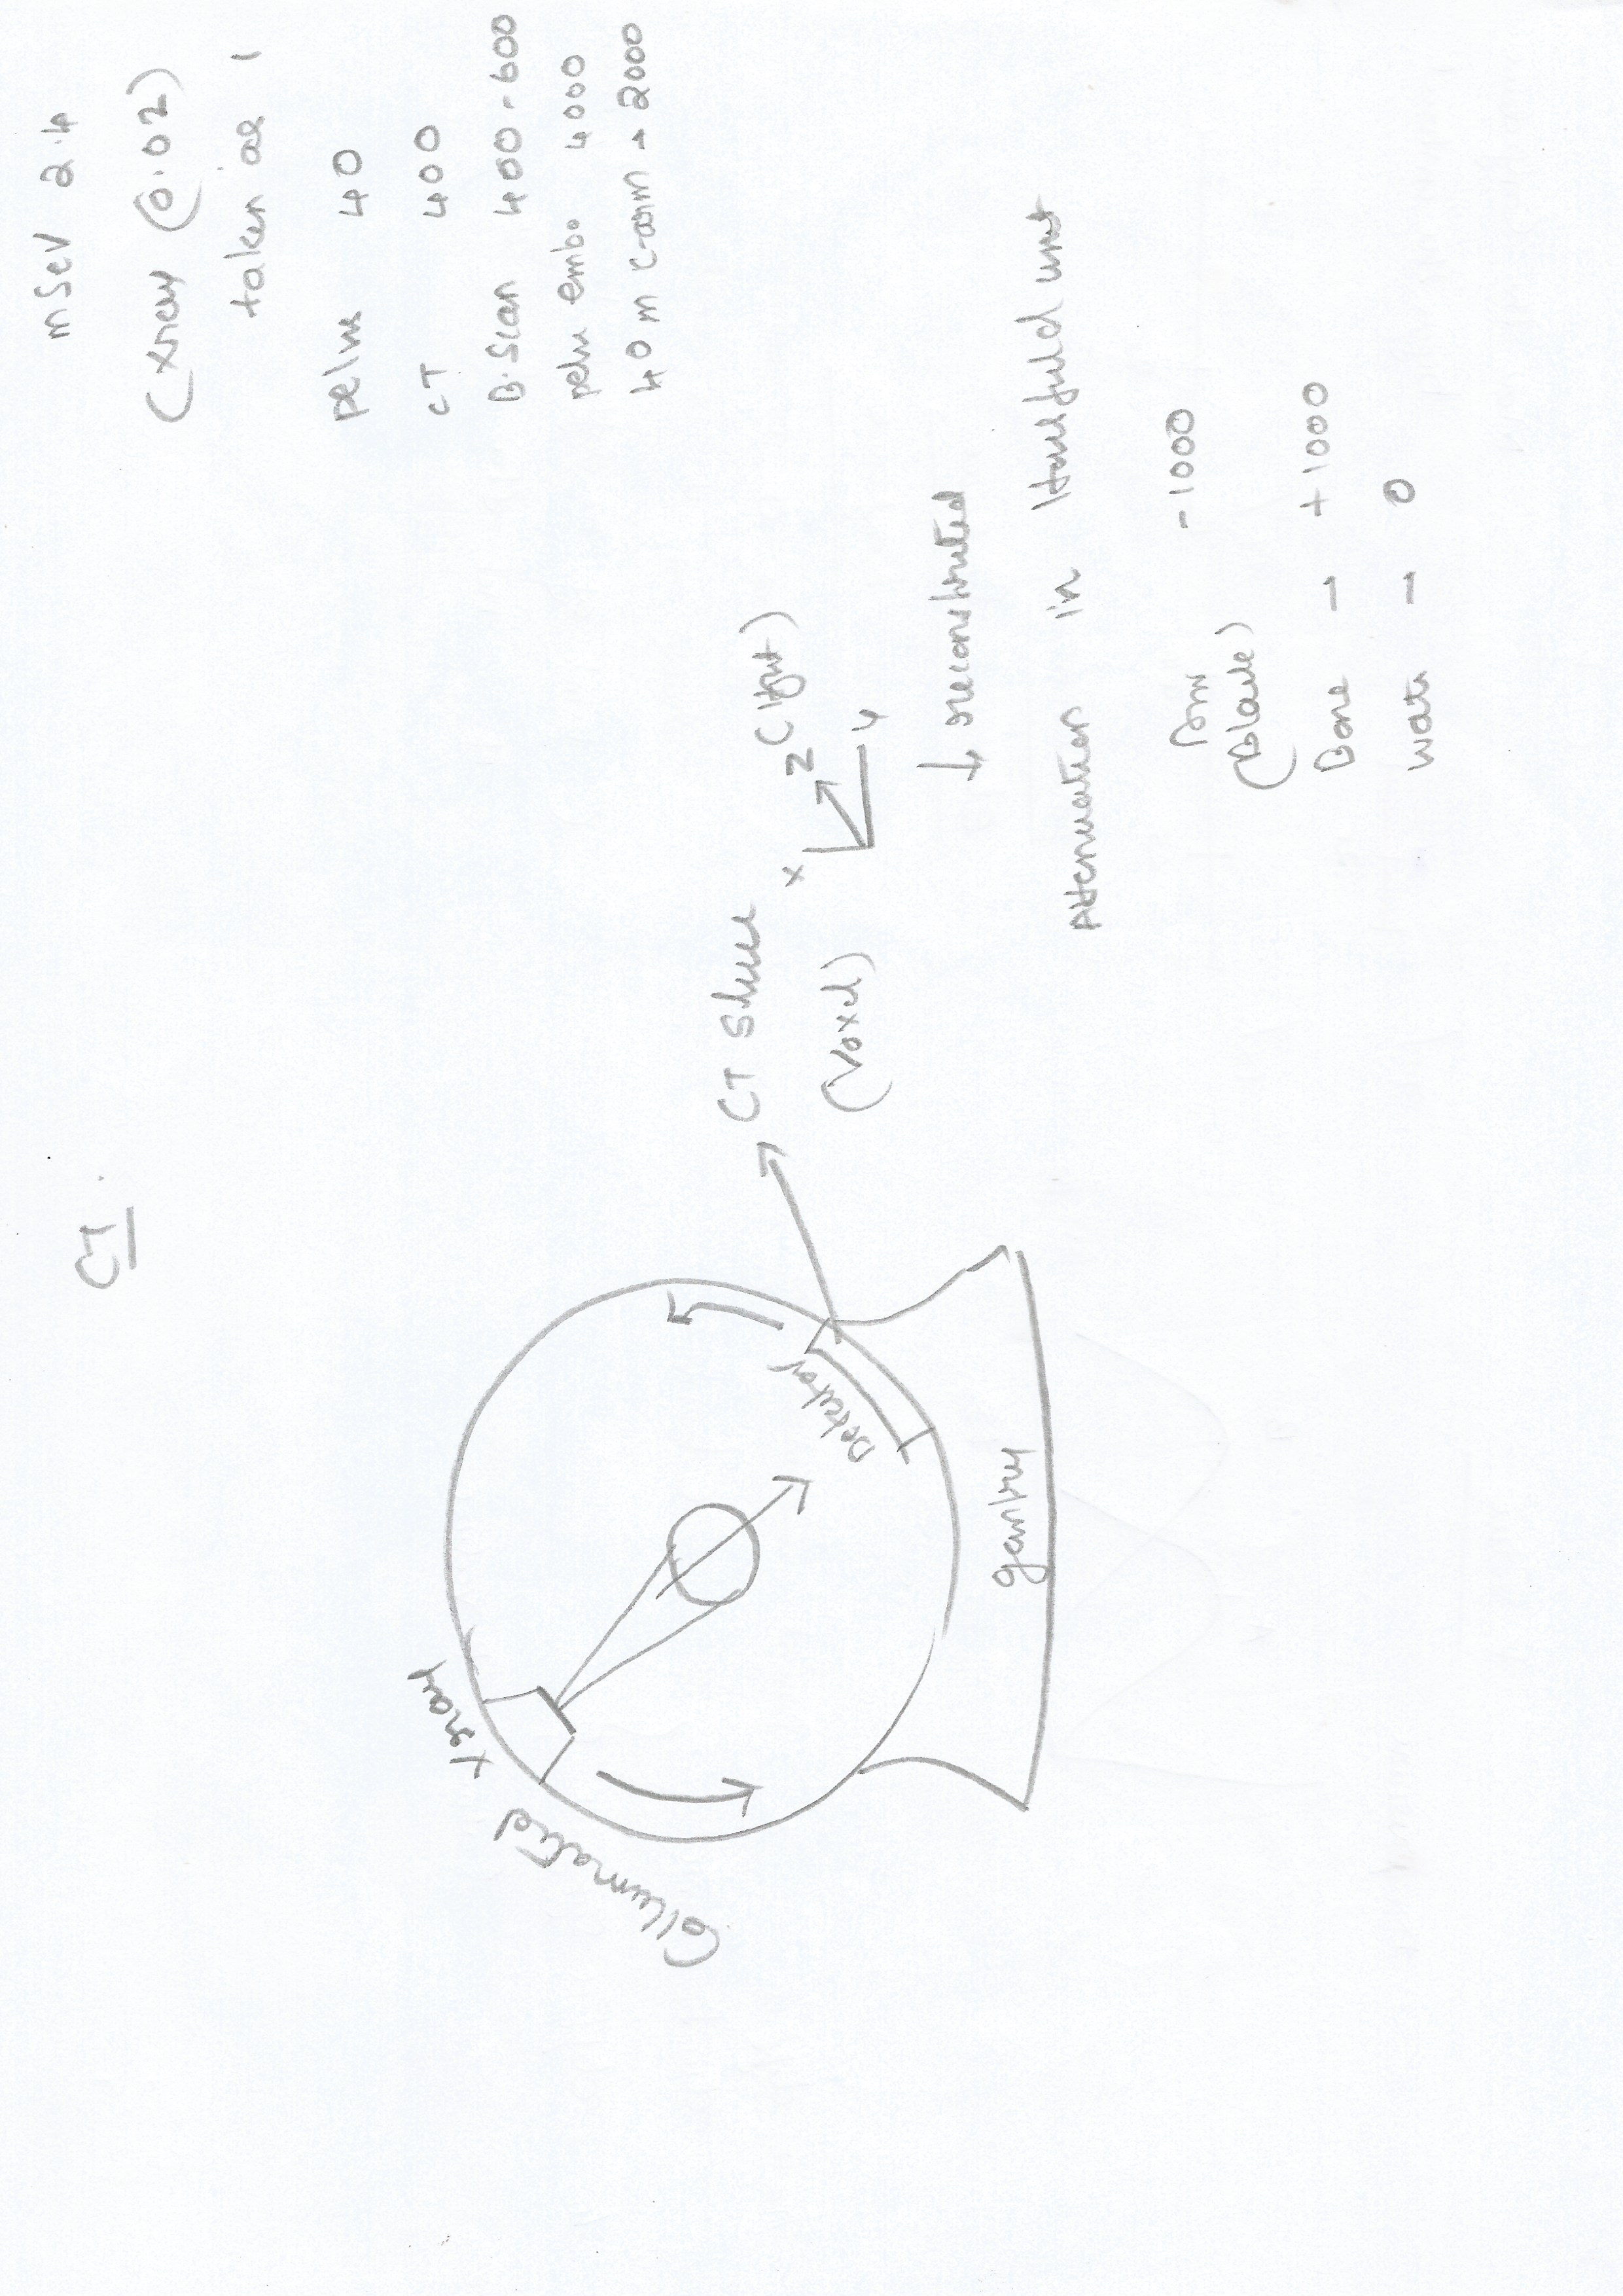 CT
mSev 2.4
(Xray (0.02)
taken as 1
pelvis 40
CT 400
B.Scan 400-600
pelvi embo 4000
40 m C-arm → 2000
Collumated Xray
Detector
gantry
CT Slice
(Voxel)
X
Z (Hght)
Y
↓ reconstructed
Attenuation in Housfield unit
Air -1000
(Black)
Bone → +1000
Wate → 0